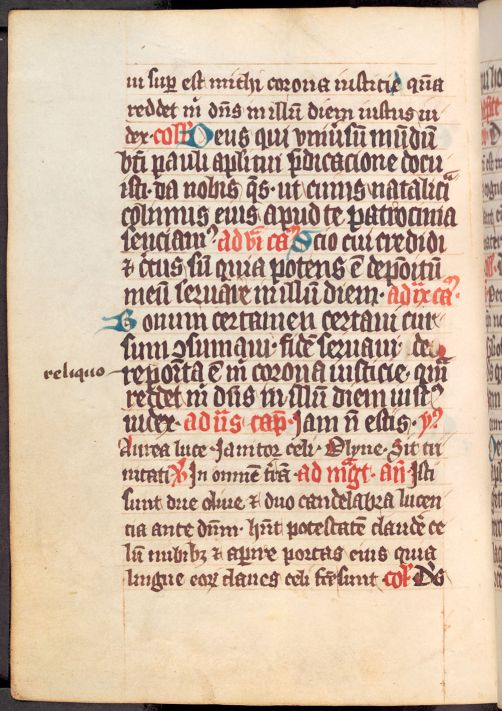 in sup est michi corona iusticie quā
reddet m̄ dn̄s in illū diem iustus iu
dex. coll̄ Deus qui vniu̾sū mūdū
bt̄i pauli apl̄i tui p̄dicacione docu
isti. da nobis q̄s. ut cuius natalicia
colimus eius apud te patrocinia
senciam᷒ ad vi ca᷒ Scio cui credidi
⁊ cert᷒ sū quia potens ē depositū
meū seruare in illū diem. ad ix ca᷒.
Bonum certamen certaui cur
sum ꝯsumaui. fidē seruaui. de
reliquo reposita ē m̄ corona iusticie, quā
reddet m̄ dn̄s in illū diem iust᷒
iudex. ad ijs cap̄. Jam n̄ estis. y᷒
Aurea luce. Janitor celi. Olyue. Sit tri
nitati ꝟ. Jn omnē trā. ad mḡt. an̄ Jsti
sunt due oliue ⁊ duo candelabra lucen
cia ante dn̄m. hn̄t potestatē claudē ce
lū nubibꝫ ⁊ aperire portas eius quia
lingue eoꝝ claues celi fc̄e sunt coll̄ Ds̄